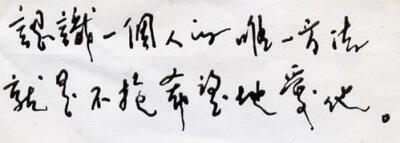 認識一個人的唯一方法
就是不抱希望地愛他。